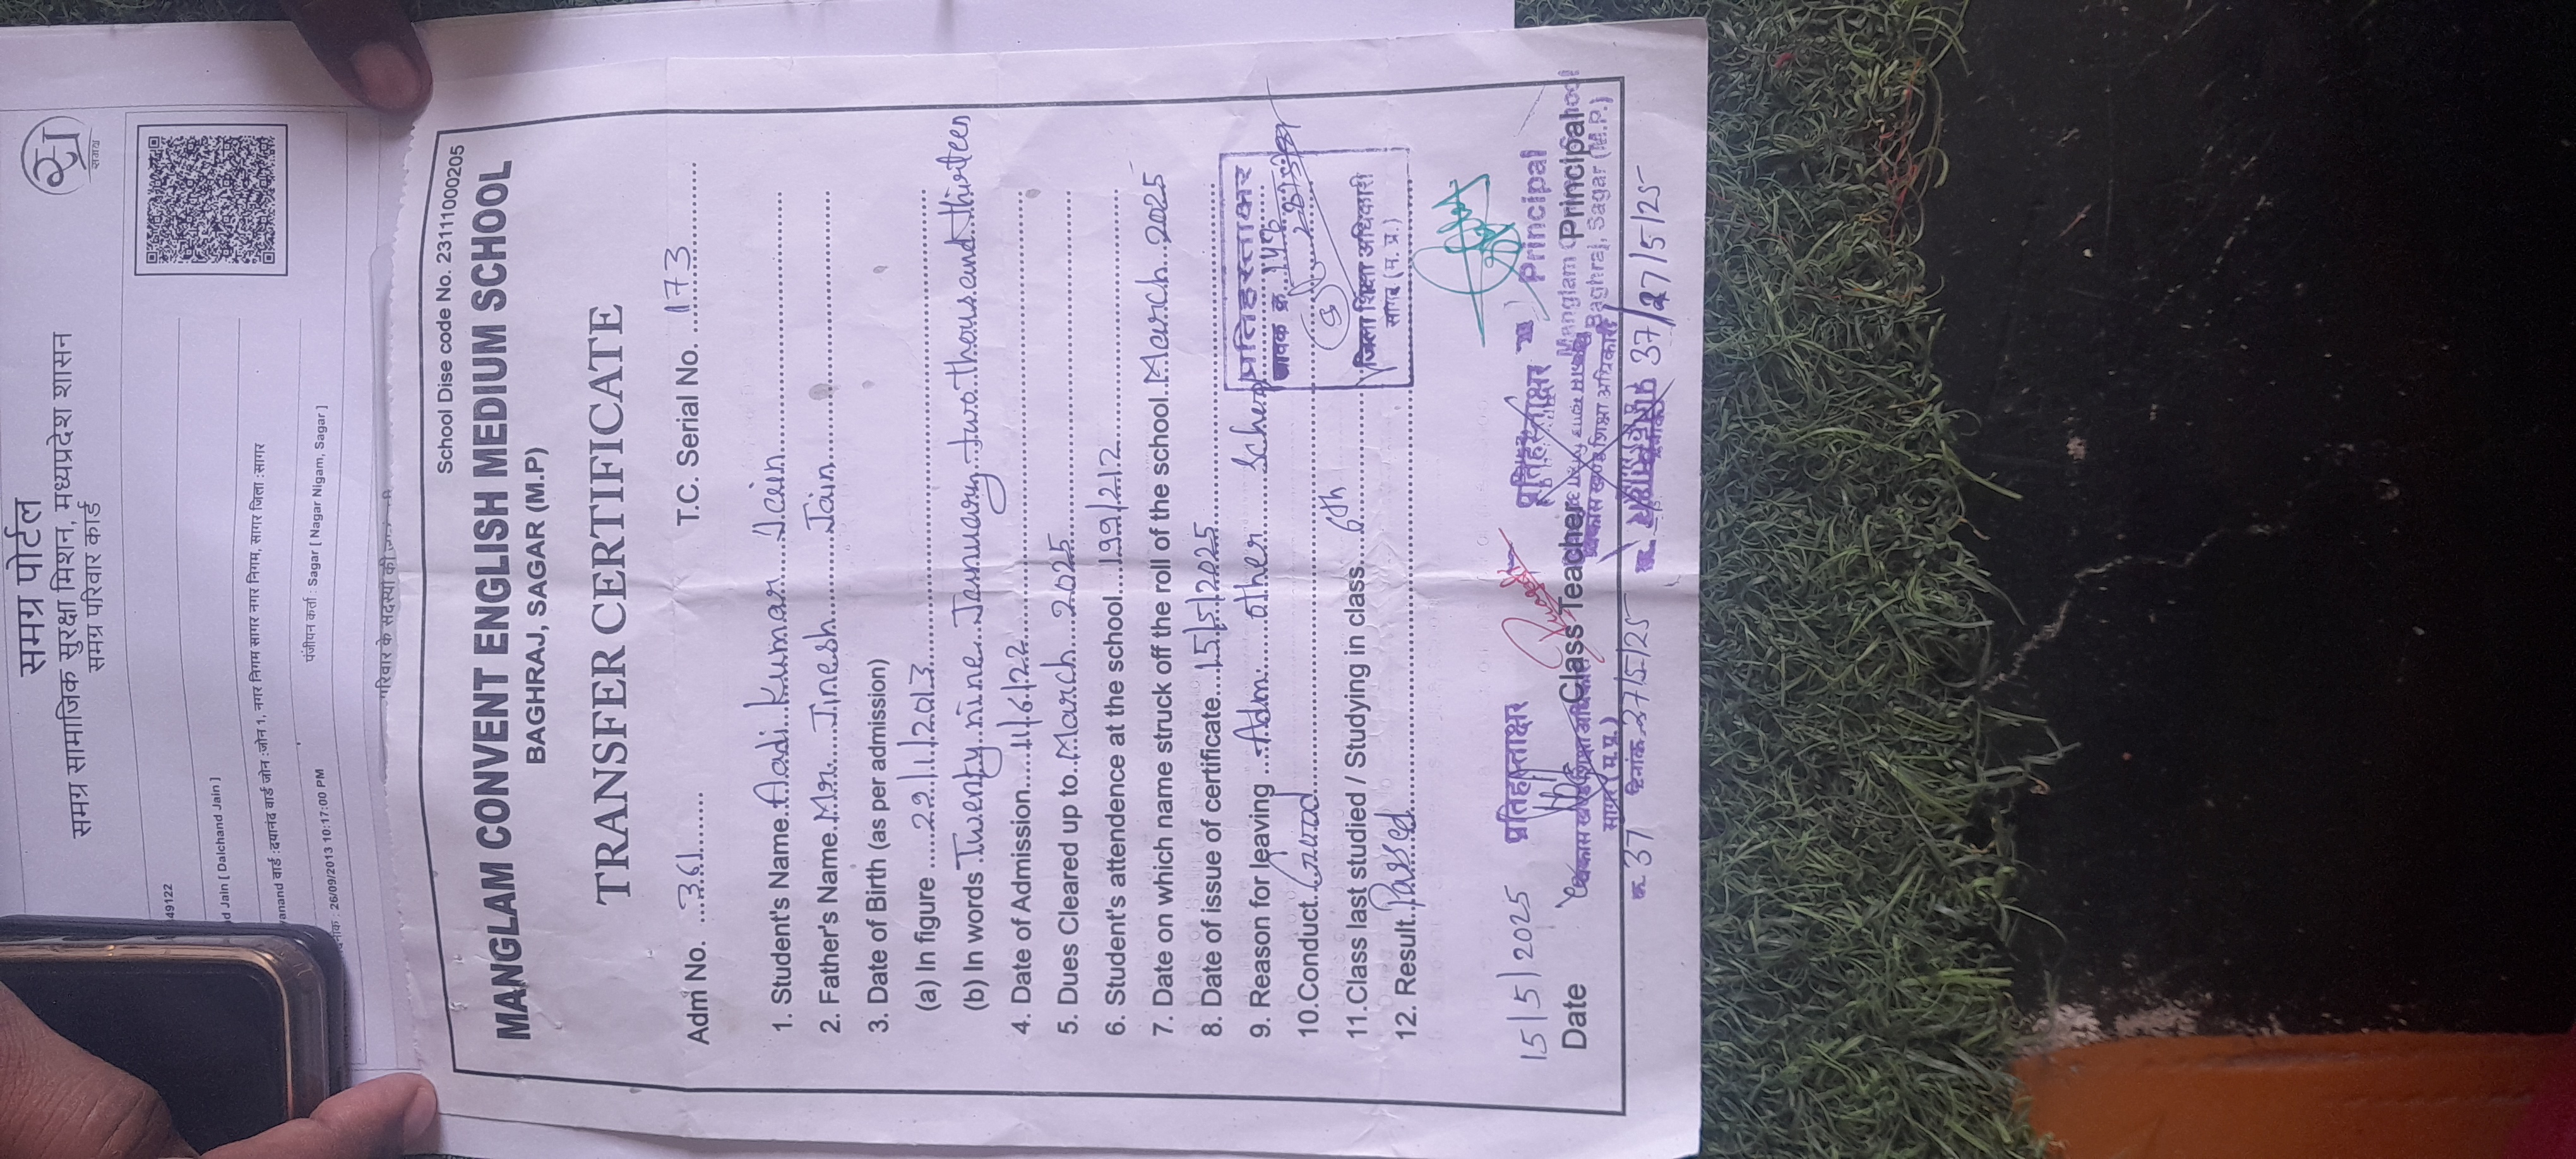 समग्र पोर्टल
समग्र सामाजिक सुरक्षा मिशन, मध्यप्रदेश शासन
समग्र परिवार कार्ड
समग्र
49122
d Jain [ Dalchand Jain ]
yanand वार्ड :दयानंद वार्ड जोन :जोन 1, नगर निगम सागर नगर निगम, सागर जिला :सागर
26/09/2013 10:17:00 PM पंजीयन कर्ता : Sagar [ Nagar Nigam, Sagar ]
परिवार के सदस्यों की
School Dise code No. 23111000205
MANGLAM CONVENT ENGLISH MEDIUM SCHOOL
BAGHRAJ, SAGAR (M.P)
TRANSFER CERTIFICATE
Adm No. ...361....... T.C. Serial No. ..173..........
1. Student's Name. Aadi Kumar Jain
2. Father's Name. Mr. Jinesh Jain
3. Date of Birth (as per admission)
(a) In figure ....29/1/2013
(b) In words Twenty nine January two thousand thirteen
4. Date of Admission....11/6/22
5. Dues Cleared up to. March 2025
6. Student's attendence at the school....199/212
7. Date on which name struck off the roll of the school. March 2025
8. Date of issue of certificate....15/5/2025
9. Reason for leaving ....Adm. other School
10.Conduct. Good
11.Class last studied / Studying in class. 6th
12. Result. Passed
प्रतिहस्ताक्षर
जावक क्रं
जिला शिक्षा अधिकारी
सागर (म. प्र.)
15/5/2025 प्रतिहस्ताक्षर प्रतिहस्ताक्षर Principal
Date Class Teacher Principal
Baghraj, Sagar (M.P.)
सागर (म.प्र.)
क्र. 37 दिनांक 27/5/25 37/27/5/25